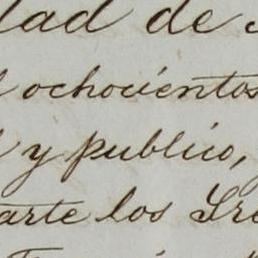 dad de
ochocientos
y publico,
arte los Sre